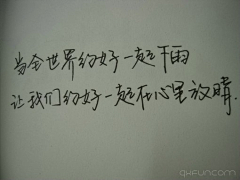 当全世界约好一起下雨
让我们约好一起在心里放晴.
qufun.com